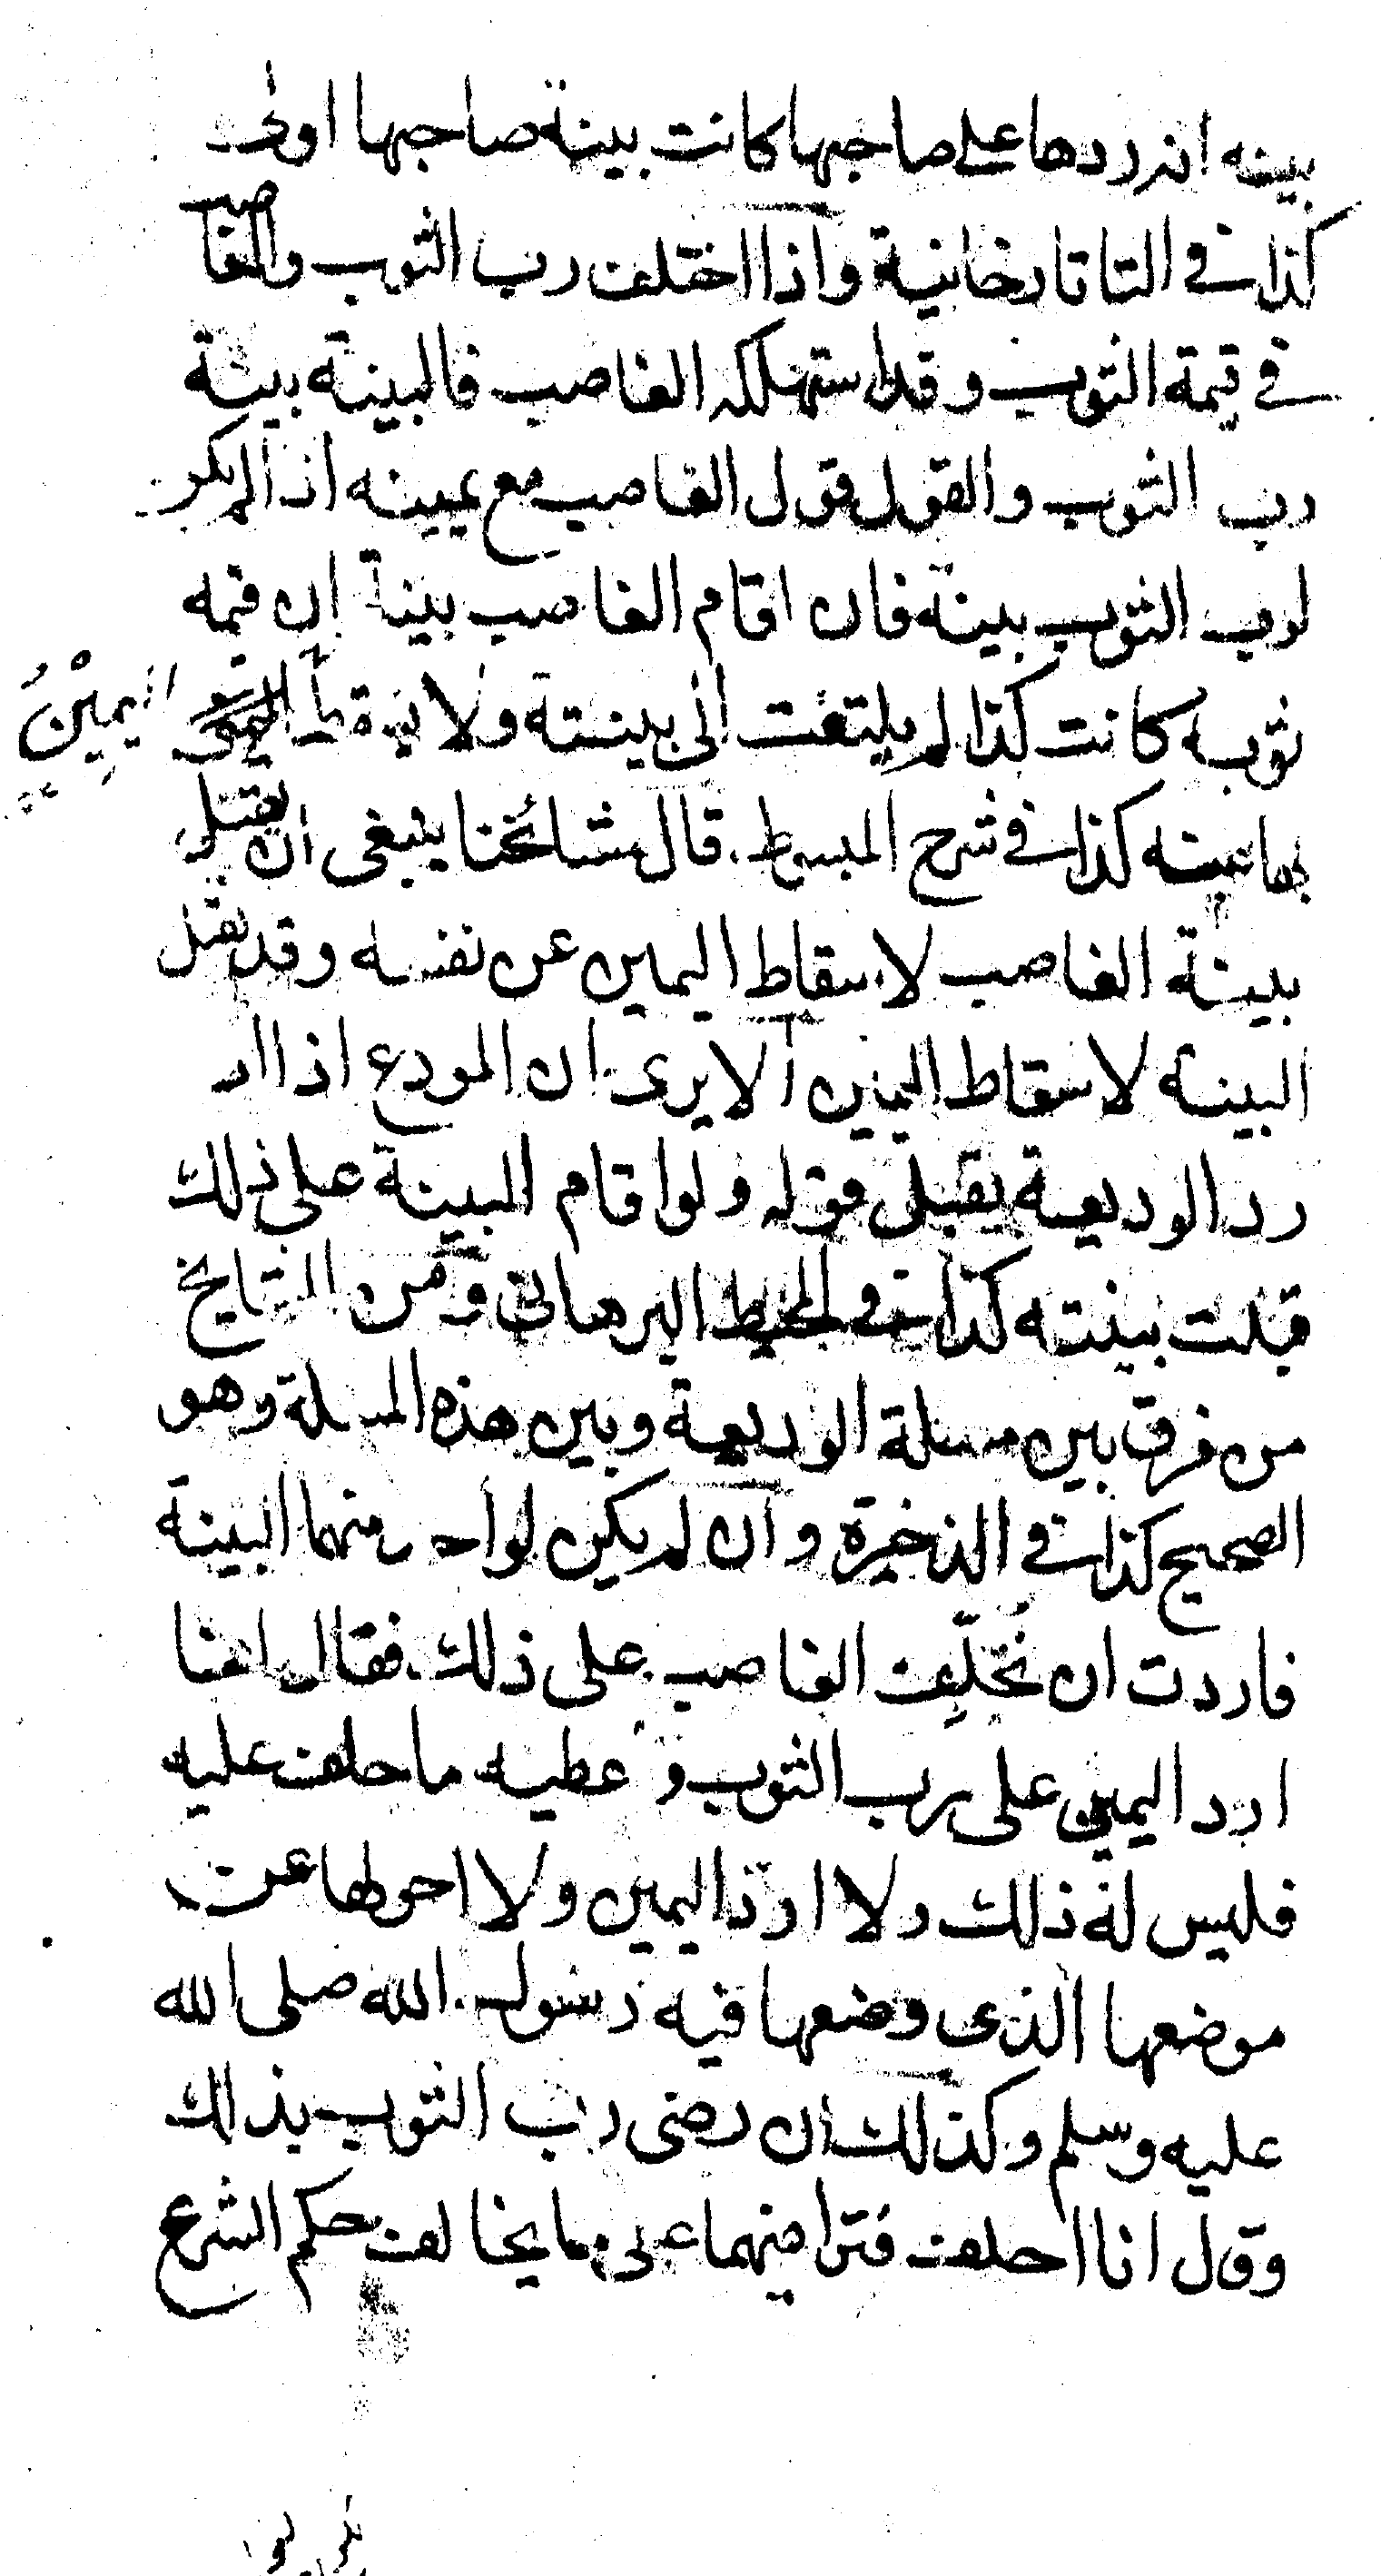 بينه انه ردها على صاحبها كانت بينة صاحبها اولى
كذا في التاتارخانية واذا اختلف رب الثوب والغاصب
في قيمة الثوب وقد استهلكه الغاصب فالبينة بينة
رب الثوب والقول قول الغاصب مع يمينه اذا لم يكن
لرب الثوب بينة فان اقام الغاصب بينة ان قيمه
ثوبه كانت كذا لم يلتفت الى بينته ولا
اليمين
بينته كذا في شرح المبسوط قال مشائخنا ينبغي ان يقبل
بينة الغاصب لاسقاط اليمين عن نفسه وقد يقبل
البينة لاسقاط اليمين الا يرى ان المودع اذا
رد الوديعة يقبل قوله ولو اقام البينة على ذلك
قبلت بينته كذا في المحيط البرهاني ومن المشايخ
من فرق بين مسئلة الوديعة وبين هذه المسئلة وهو
الصحيح كذا في الذخيرة وان لم يكن لواحد منهما البينة
فاردت ان نحلّف الغاصب على ذلك فقال انا
ارد اليمين على رب الثوب واعطيه ما حلف عليه
فليس له ذلك ولا ارد اليمين ولا احولها عن
موضعها الذى وضعها فيه رسول الله صلى الله
عليه وسلم وكذلك ان رضى رب الثوب بذلك
وقال انا احلف فتراضيهما على ما يخالف حكم الشرع